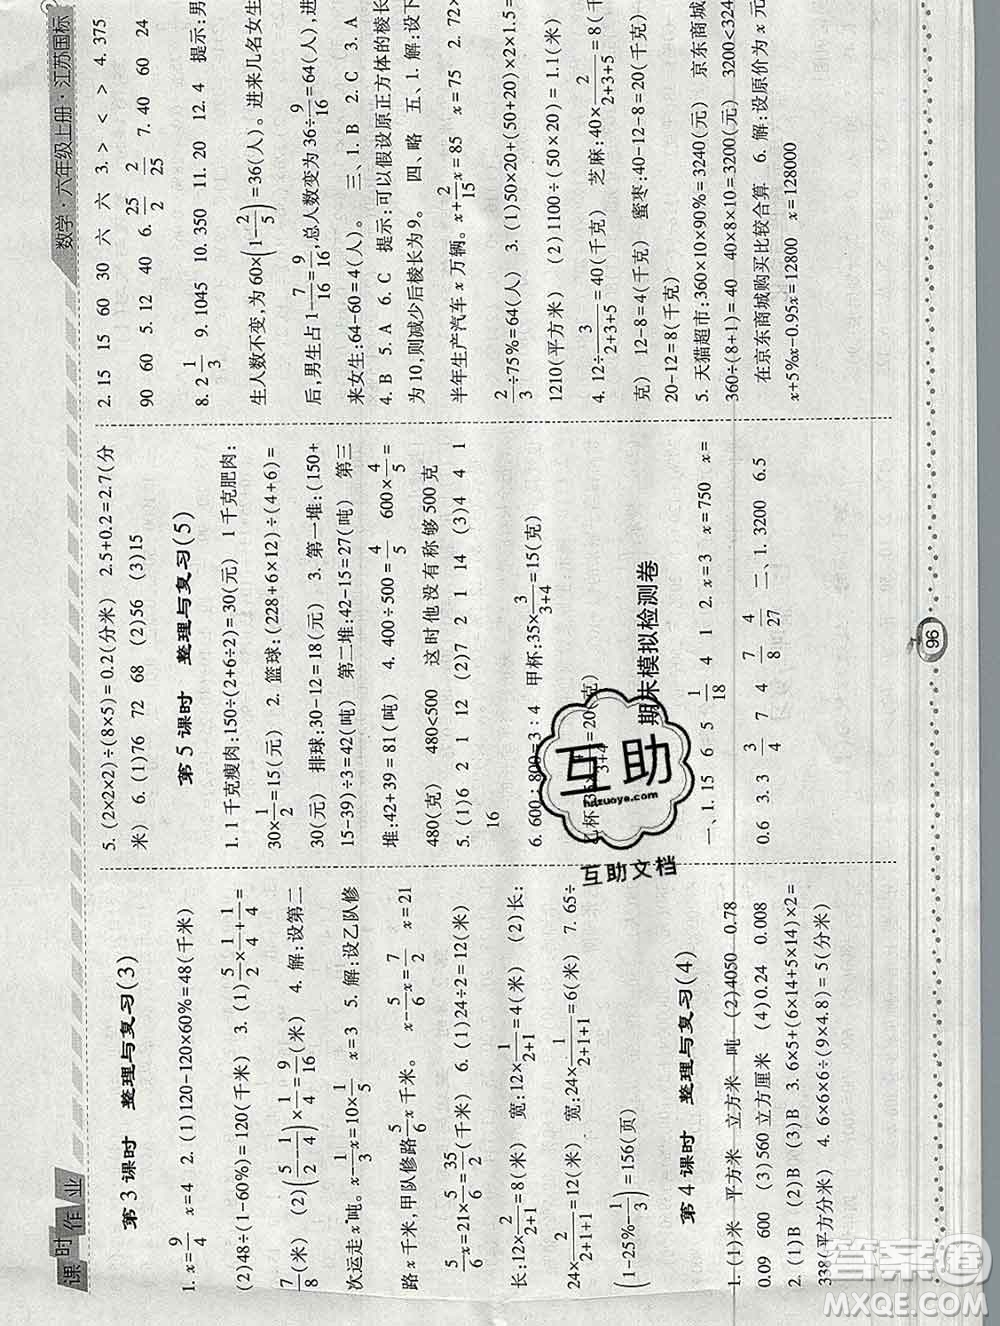 课时作业
数学·六年级上册·江苏国标
第3课时 整理与复习(3)
1. x=9/4 x=4 2. (1)120-120×60%=48(千米)
(2)48÷(1-60%)=120(千米) 3. (1)5/2×1/4+1/4=
7/8(米) (2)(5/2-1/4)×1/4=9/16(米) 4. 解:设第二
次运走x吨。x-1/3x=10×1/5 x=3 5. 解:设乙队修
路x千米,甲队修路5/6x千米。 x-5/6x=7/2 x=21
5/6x=21×5/6=35/2(千米) 6. (1)24÷2=12(米)
长:12×2/(2+1)=8(米) 宽:12×1/(2+1)=4(米) (2)长:
24×2/(2+1+1)=12(米) 宽:24×1/(2+1+1)=6(米) 7. 65÷
(1-25%-1/3)=156(页)
第4课时 整理与复习(4)
1. (1)米 平方米 立方米 吨 (2)4050 0.78
0.09 600 (3)560立方厘米 (4)0.24 0.008
2. (1)B (2)B (3)B 3. 6×5+(6×14+5×14)×2=
338(平方分米) 4. 6×6×6÷(9×4.8)=5(分米)
5. (2×2×2)÷(8×5)=0.2(分米) 2.5+0.2=2.7(分
米) 6. (1)76 72 68 (2)56 (3)15
第5课时 整理与复习(5)
1. 1千克瘦肉:150÷(2+6÷2)=30(元) 1千克肥肉:
30×1/2=15(元) 2. 篮球:(228+6×12)÷(4+6)=
30(元) 排球:30-12=18(元) 3. 第一堆:(150+
15-39)÷3=42(吨) 第二堆:42-15=27(吨) 第三
堆:42+39=81(吨) 4. 400÷500=4/5 600×4/5=
480(克) 480<500 这时他没有称够500克
5. (1)6 2 1 12 (2)7 2 1 14 (3)4 4 1
16
6. 600:800=3:4 甲杯:35×3/(3+4)=15(克)
期末模拟检测卷
一、1. 15 6 5 1/18 4 1 2. x=3 x=750 x=
0.6 3. 3 3/4 7 4 7/8 4/27 二、1. 3200 6.5
2. 15 15 60 30 六 六 3. > < > 4. 375
90 60 5. 12 40 6. 25/2 2/25 7. 40 60 24
8. 2 1/3 9. 1045 10. 350 11. 20 12. 4 提示:男
生人数不变,为60×(1-2/5)=36(人)。进来几名女生
后,男生占1-7/16=9/16,总人数变为36÷9/16=64(人),进
来女生:64-60=4(人)。 三、1. B 2. C 3. A
4. B 5. A 6. C 提示:可以假设原正方体的棱长
为10,则减少后棱长为9。 四、略 五、1. 解:设下
半年生产汽车x万辆。x+2/15x=85 x=75 2. 72×
2/3÷75%=64(人) 3. (1)50×20+(50+20)×2×1.5=
1210(平方米) (2)1100÷(50×20)=1.1(米)
4. 12÷3/(2+3+5)=40(千克) 芝麻:40×2/(2+3+5)=8(千
克) 12-8=4(千克) 蜜枣:40-12-8=20(千克)
20-12=8(千克)
5. 天猫超市:360×10×90%=3240(元) 京东商城
360÷(8+1)=40 40×8×10=3200(元) 3240>3200
在京东商城购买比较合算 6. 解:设原价为x元
x+5%x-0.95x=12800 x=128000
96
互助
hdzuoye.com
互助文档
答案通
MXQE.COM